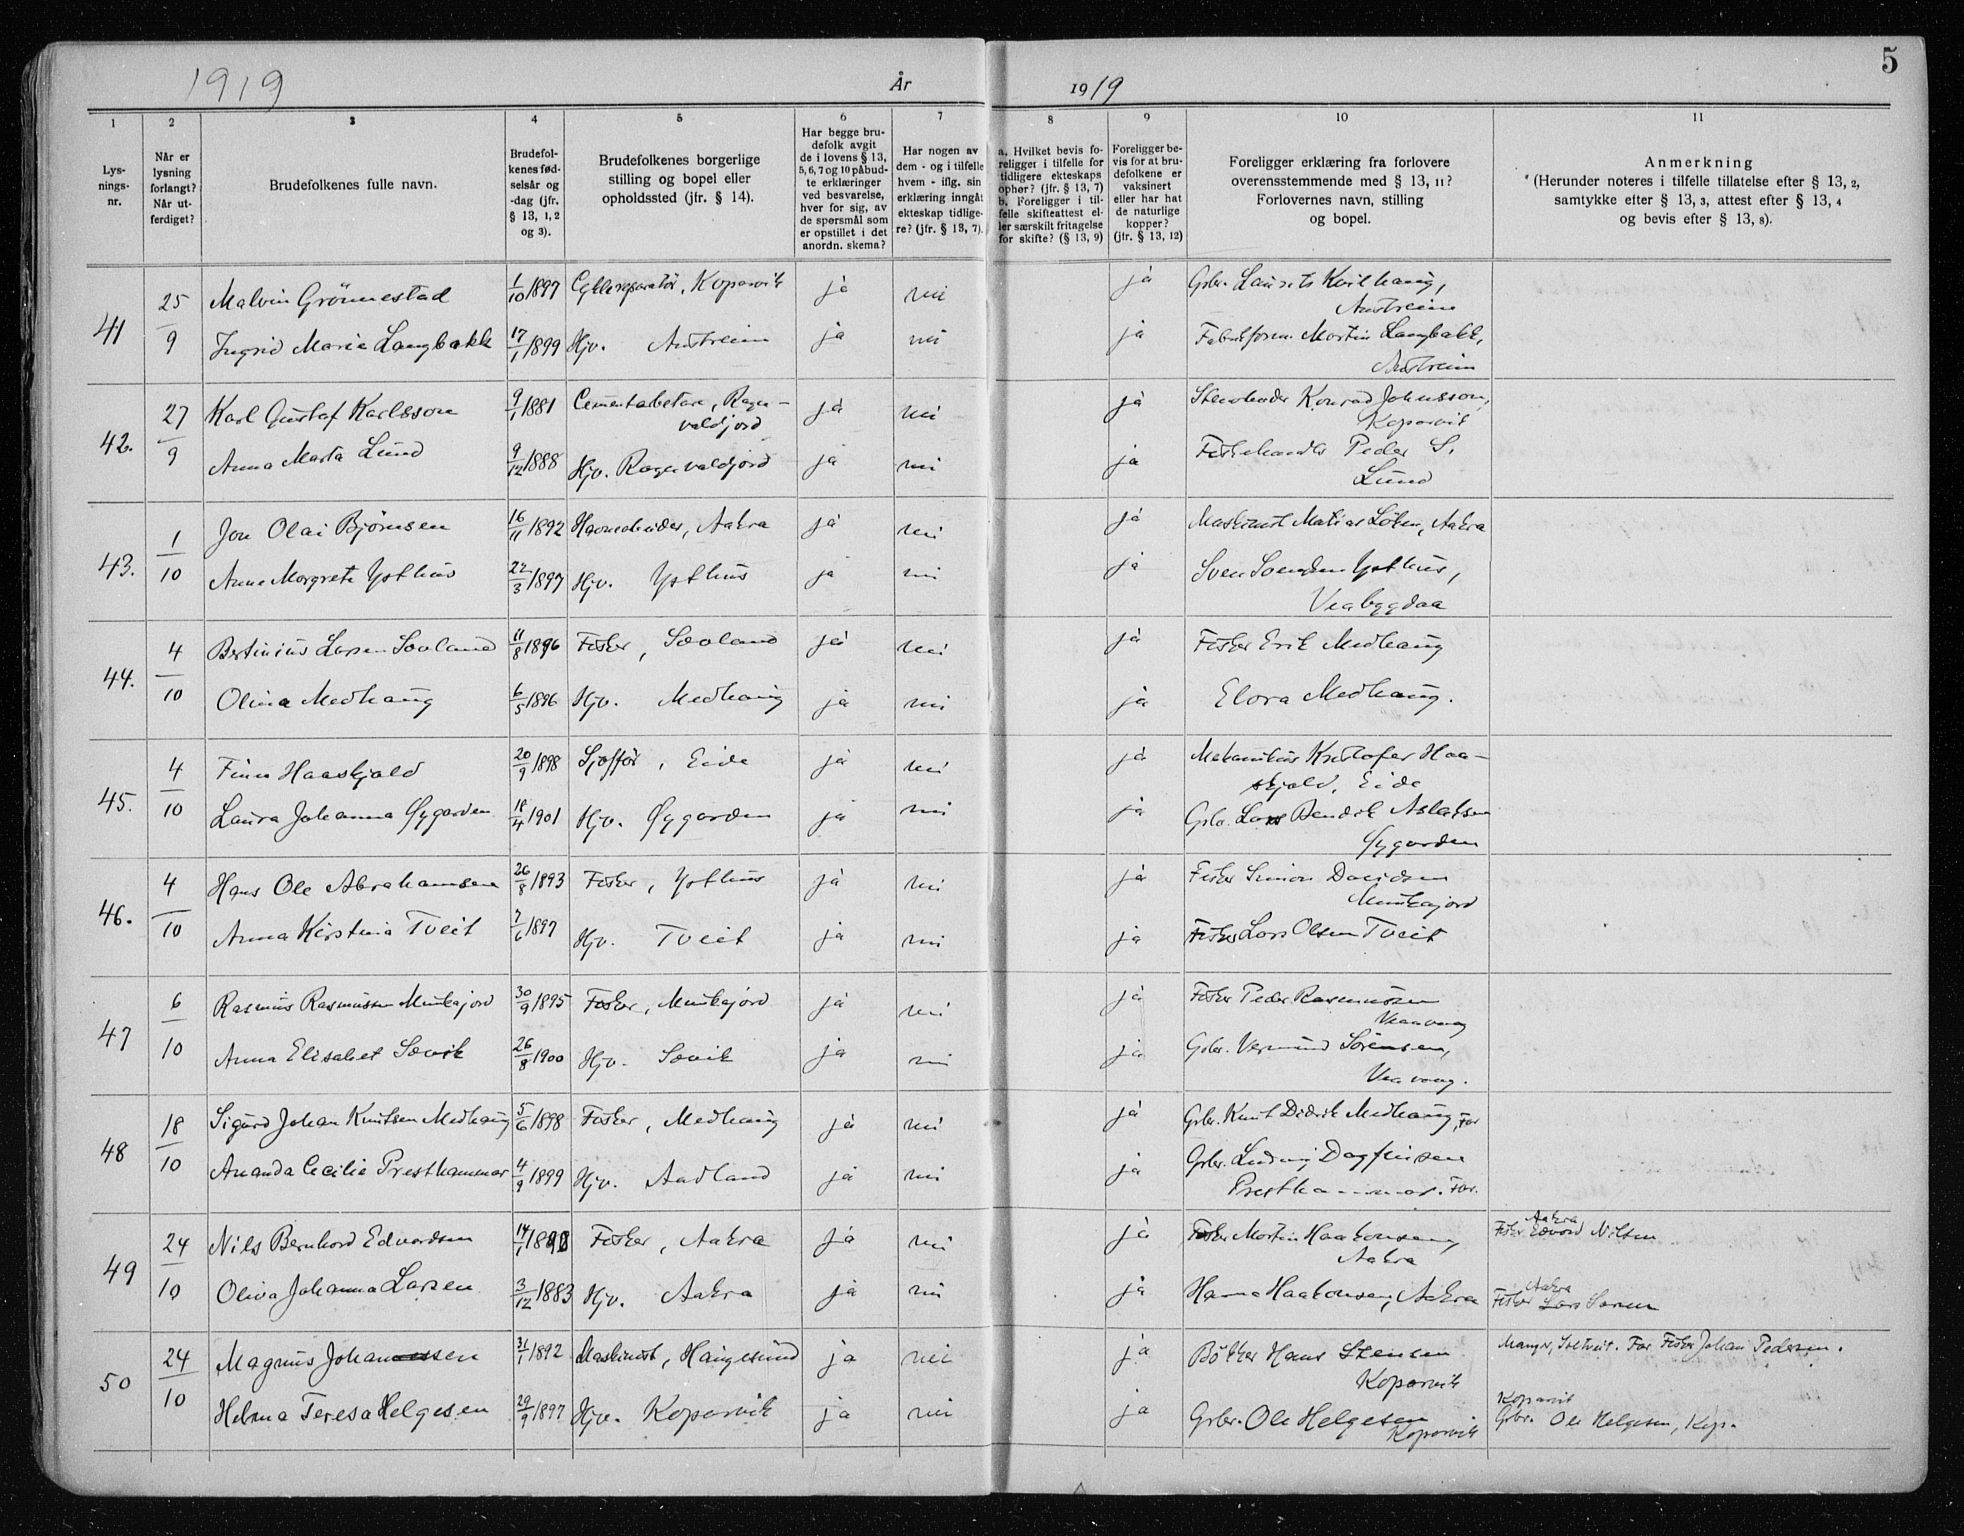 5
1919
År
1919
1
2
3
4
5
6
7
8
9
10
11
Lys-
nings-
nr.
Når er
lysning
forlangt?
Når ut-
ferdiget?
Brudefolkenes fulle navn.
Brudefol-
kenes fød-
selsår og
-dag (jfr.
§ 13, 1, 2
og 3).
Brudefolkenes borgerlige
stilling og bopel eller
opholdssted (jfr. § 14).
Har begge bru-
defolk avgit
de i lovens § 13,
5, 6, 7 og 10 påbud-
te erklæringer
ved besvarelse,
hver for sig, av
de spørsmål som
er opstillet i det
anordn. skema?
Har nogen av
dem - og i tilfelle
hvem - iflg. sin
erklæring inngåt
ekteskap tidlige-
re? (jfr. § 13, 7).
a. Hvilket bevis fo-
religger i tilfelle for
tidligere ekteskaps
ophør? (jfr. § 13, 7)
b. Foreligger i til-
felle skifteattest el-
ler særskilt fritagelse
for skifte? (§ 13, 9)
Foreligger be-
vis for at bru-
defolkene er
vaksinert
eller har hat
de naturlige
kopper?
(jfr. § 13, 12)
Foreligger erklæring fra forlovere
overensstemmende med § 13, 11?
Forlovernes navn, stilling
og bopel.
Anmerkning
(Herunder noteres i tilfelle tillatelse efter § 13, 2,
samtykke efter § 13, 3, attest efter § 13, 4
og bevis efter § 13, 8).
41
25/9
Malvin Grönnestad 1/10 1897 Kopervik ja nei ja Gbr. Laurits Kvilhaug,
Austreim
Ingrid Marie Langbakk 17/1 1899 Hjv. Austreim ja nei ja Martin Langbakk,
Austreim
42.
27/9
Karl Gustaf Karlsson 9/1 1881 ja nei ja Konrad Johnsson,
Kopervik
Anna Marta Lund 9/12 1888 Hjv. ja nei ja Fiskehandler Peder S.
Lund
43.
1/10
Jon Olai Bjørnsen 16/11 1892 Aakra ja nei ja Maskinist Matias Aakra
Anne Margrete Ysthus 22/3 1897 Hjv. Ysthus ja nei ja Sven Svendsen Ysthus,
Veabygdaa
44.
4/10
Bertinius Larsen Sævland 11/8 1896 Fisker, Sævland ja nei ja Fisker Erik Medhaug
Olina Medhaug 6/5 1896 Hjv. Medhaug ja nei ja Elora Medhaug.
45.
4/10
Finn Haaskjold 20/9 1898 Sjofför, Eide ja nei ja Mekanikus Kristofer Haa-
skjold, Eide
Laura Johanna Øygarden 18/4 1901 Hjv. Øygarden ja nei ja Gbr. Lars Bendik Aslaksen
Øygarden
46.
4/10
Hans Ole Abrahamsen 26/8 1893 Fisker, Ysthus ja nei ja Fisker Simon Davidsen
Munkajord
Anna Kirstina Tveit 7/6 1897 Hjv. Tveit ja nei ja Fisker Lars Olsen Tveit
47
6/10
Rasmus Rasmussen Munkajord 30/9 1895 Fisker, Munkajord ja nei ja Fisker Peder Rasmussen
Veavaag
Anna Elisabet Sævik 26/8 1900 Hjv. Sævik ja nei ja Gbr. Vermund Sørensen,
Veavaag.
48
18/10
Sigurd Johan Knutsen Medhaug 5/6 1898 Fisker, Medhaug ja nei ja Gbr. Knut Didrik Medhaug, Far
Ananda Cecilie Presthammer 4/9 1899 Hjv. Aadland ja nei ja Gbr. Ludvig Dagfinsen
Presthammer. Far.
49
24/10
Nils Bernhard Edvardsen Fisker, Aakra ja nei ja Fisker Martin Haakonsen,
Aakra
Aakra
Fisker Edvard Nilsen
Oliva Johanna Larsen 3/12 1883 Hjv. Aakra ja nei ja Hanna Haakonsen, Aakra
Aakra
Fisker Lars
50
24/10
Magnus Johannessen 31/1 1892 Maskinist, Haugesund ja nei ja Bökker Hans Stensen
Kopervik
Far Fisker Johan Pedersen.
Helena Teresa Helgesen 29/9 1897 Hjv. Kopervik ja nei ja Gbr. Ole Helgesen
Kopervik
Kopervik
Gbr. Ole Helgesen, Kop.